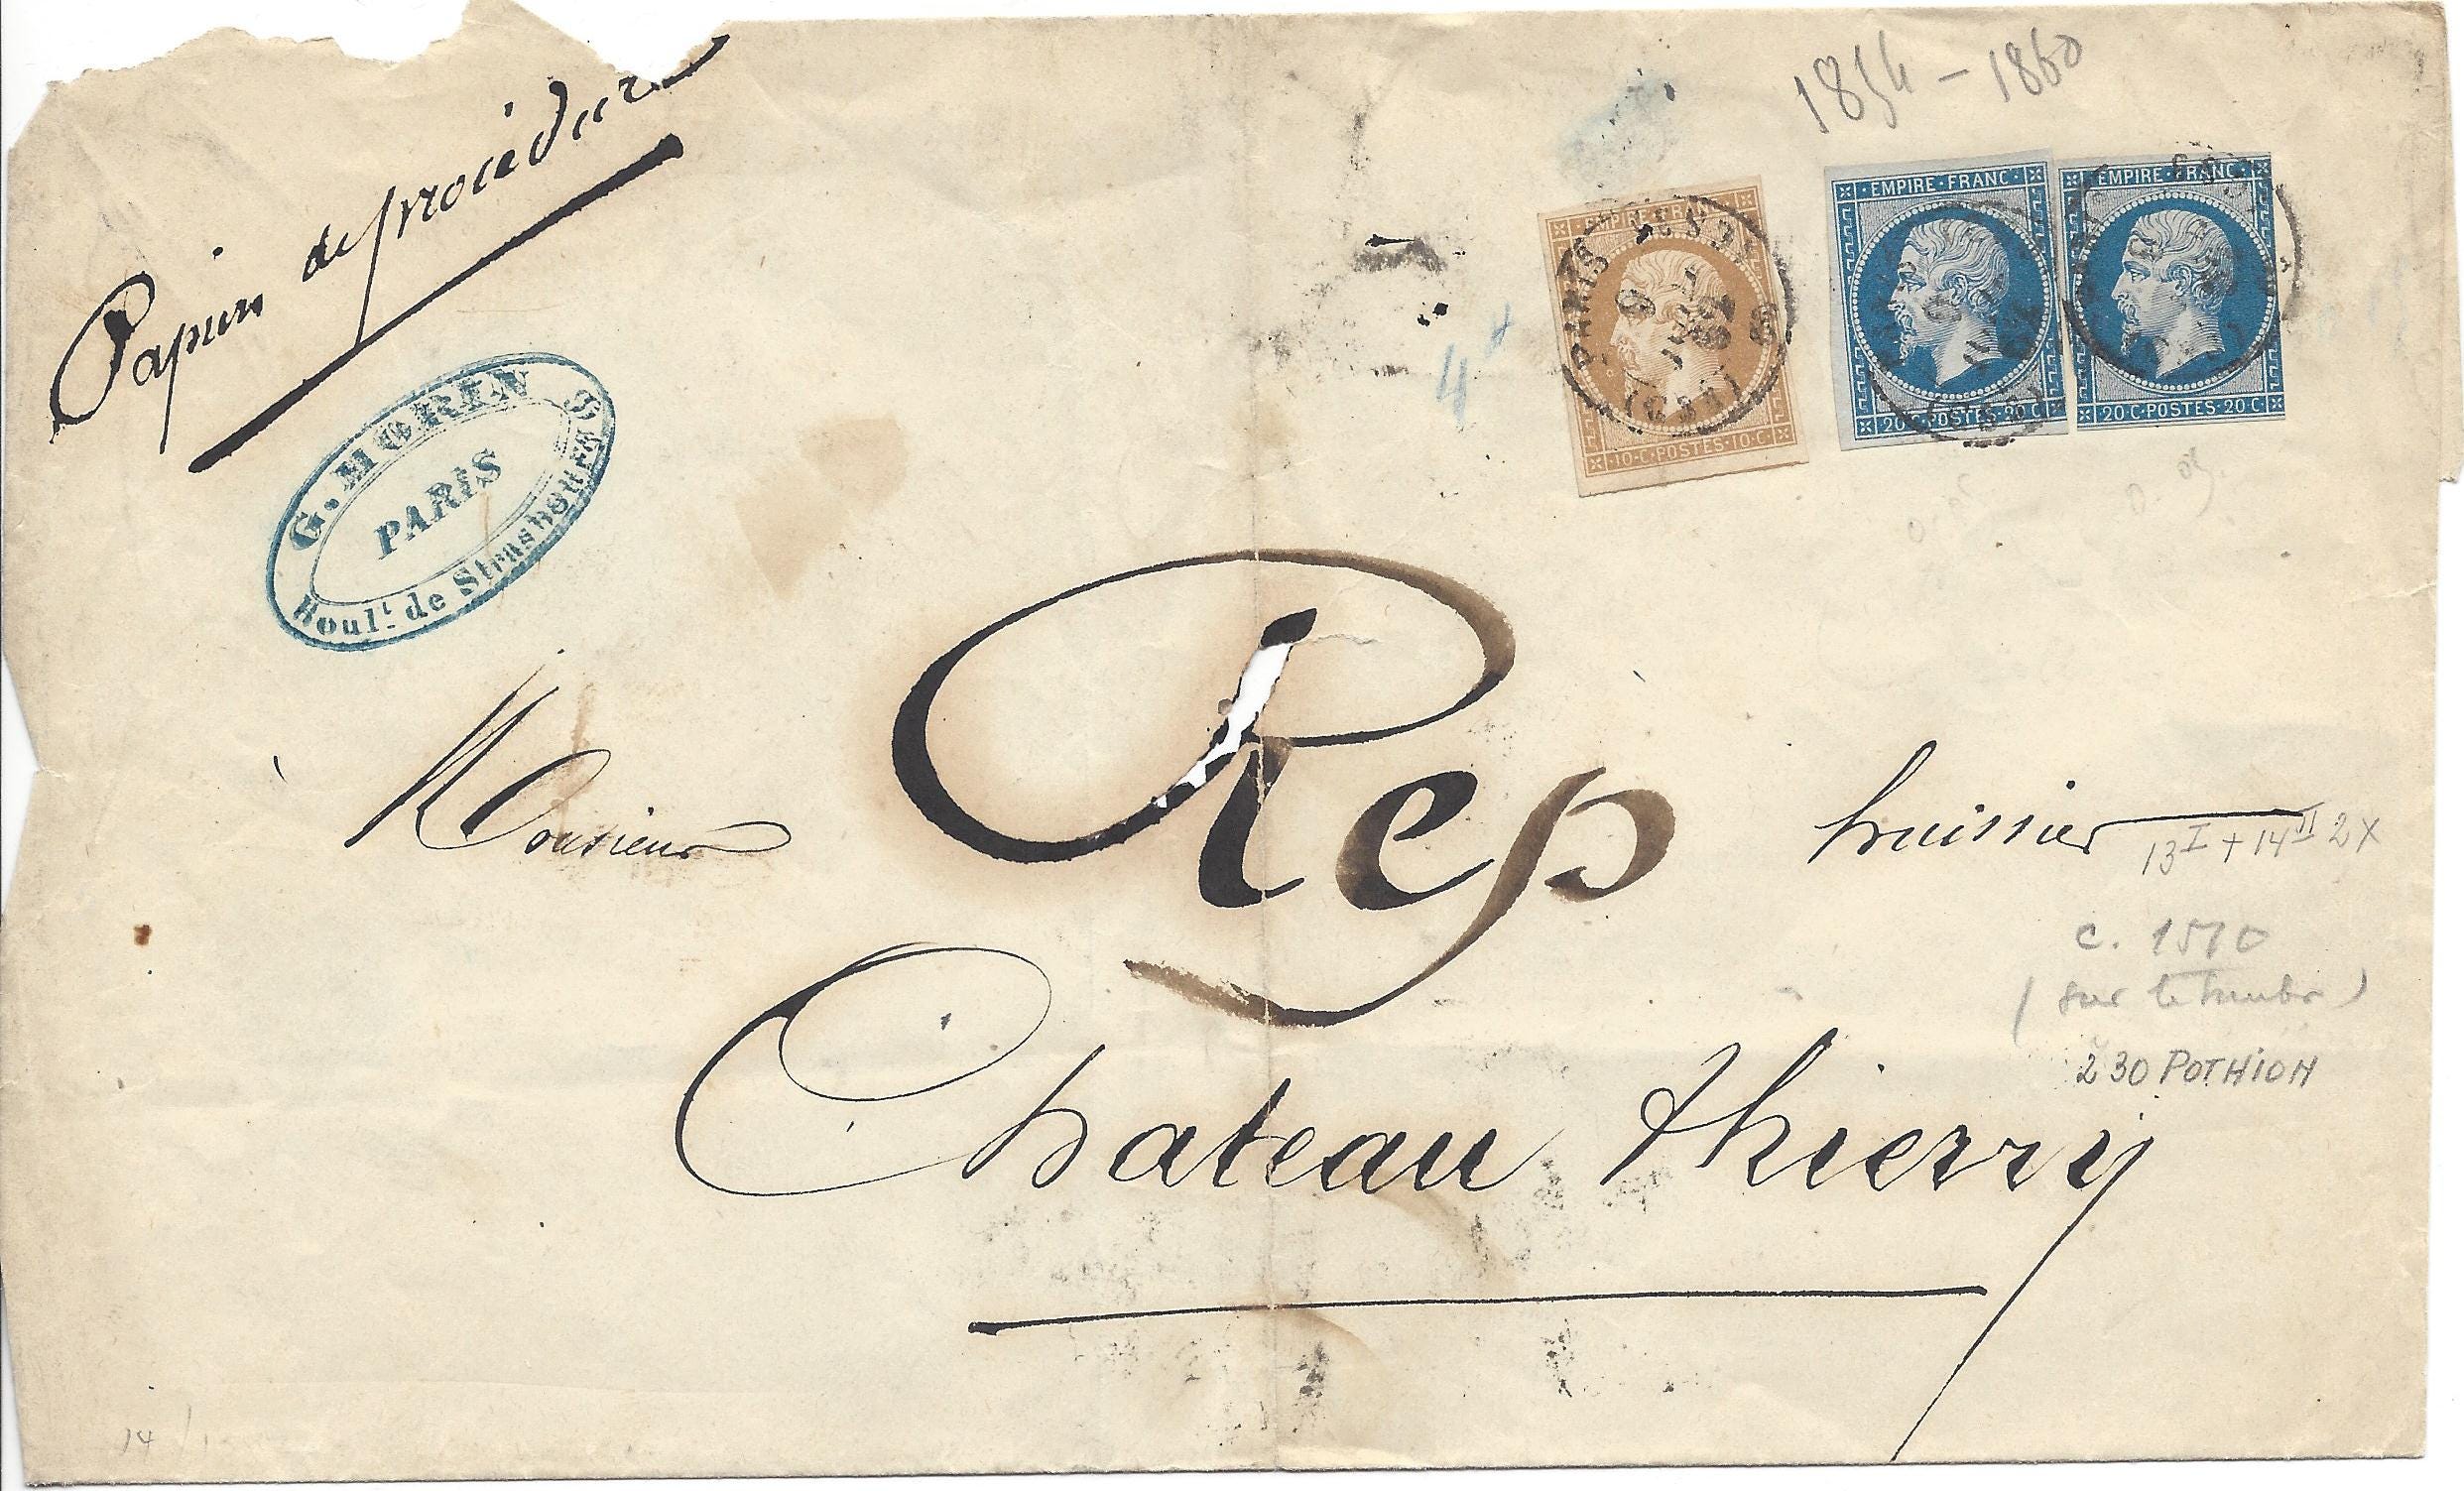 1854 - 1860
Papiers de procédure
EMPIRE FRANC
10 C POSTES 10 C
PARIS
EMPIRE FRANC
20 C POSTES 20 C
EMPIRE FRANC
20 C POSTES 20 C
G. MORIN
PARIS
Boult. de Strasbourg
4
Monsieur Rep huissier
13 I + 14 II 2X
c. 1510
(sur le timbre)
230 POTHION
Chateau thierry
14